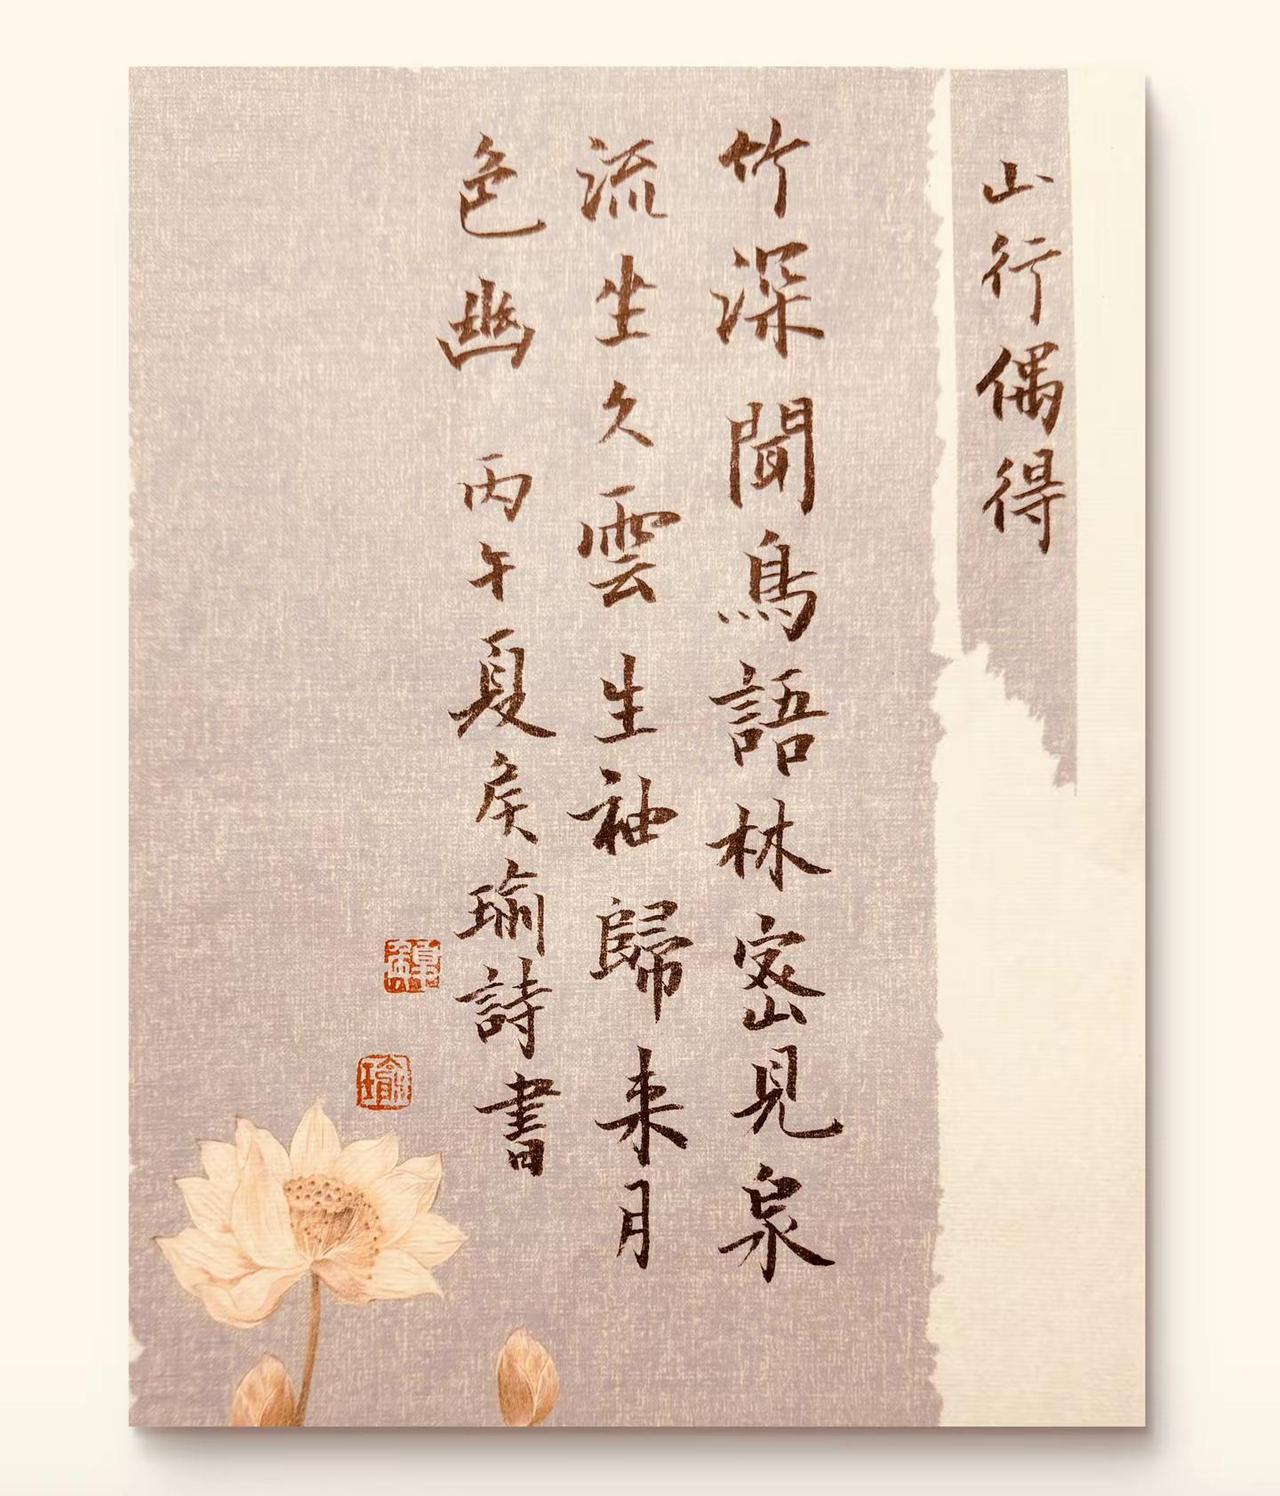 山行偶得
竹深聞鳥語林密見泉
流坐久雲生袖歸来月
色幽 丙午夏侯瑜詩書
瑜